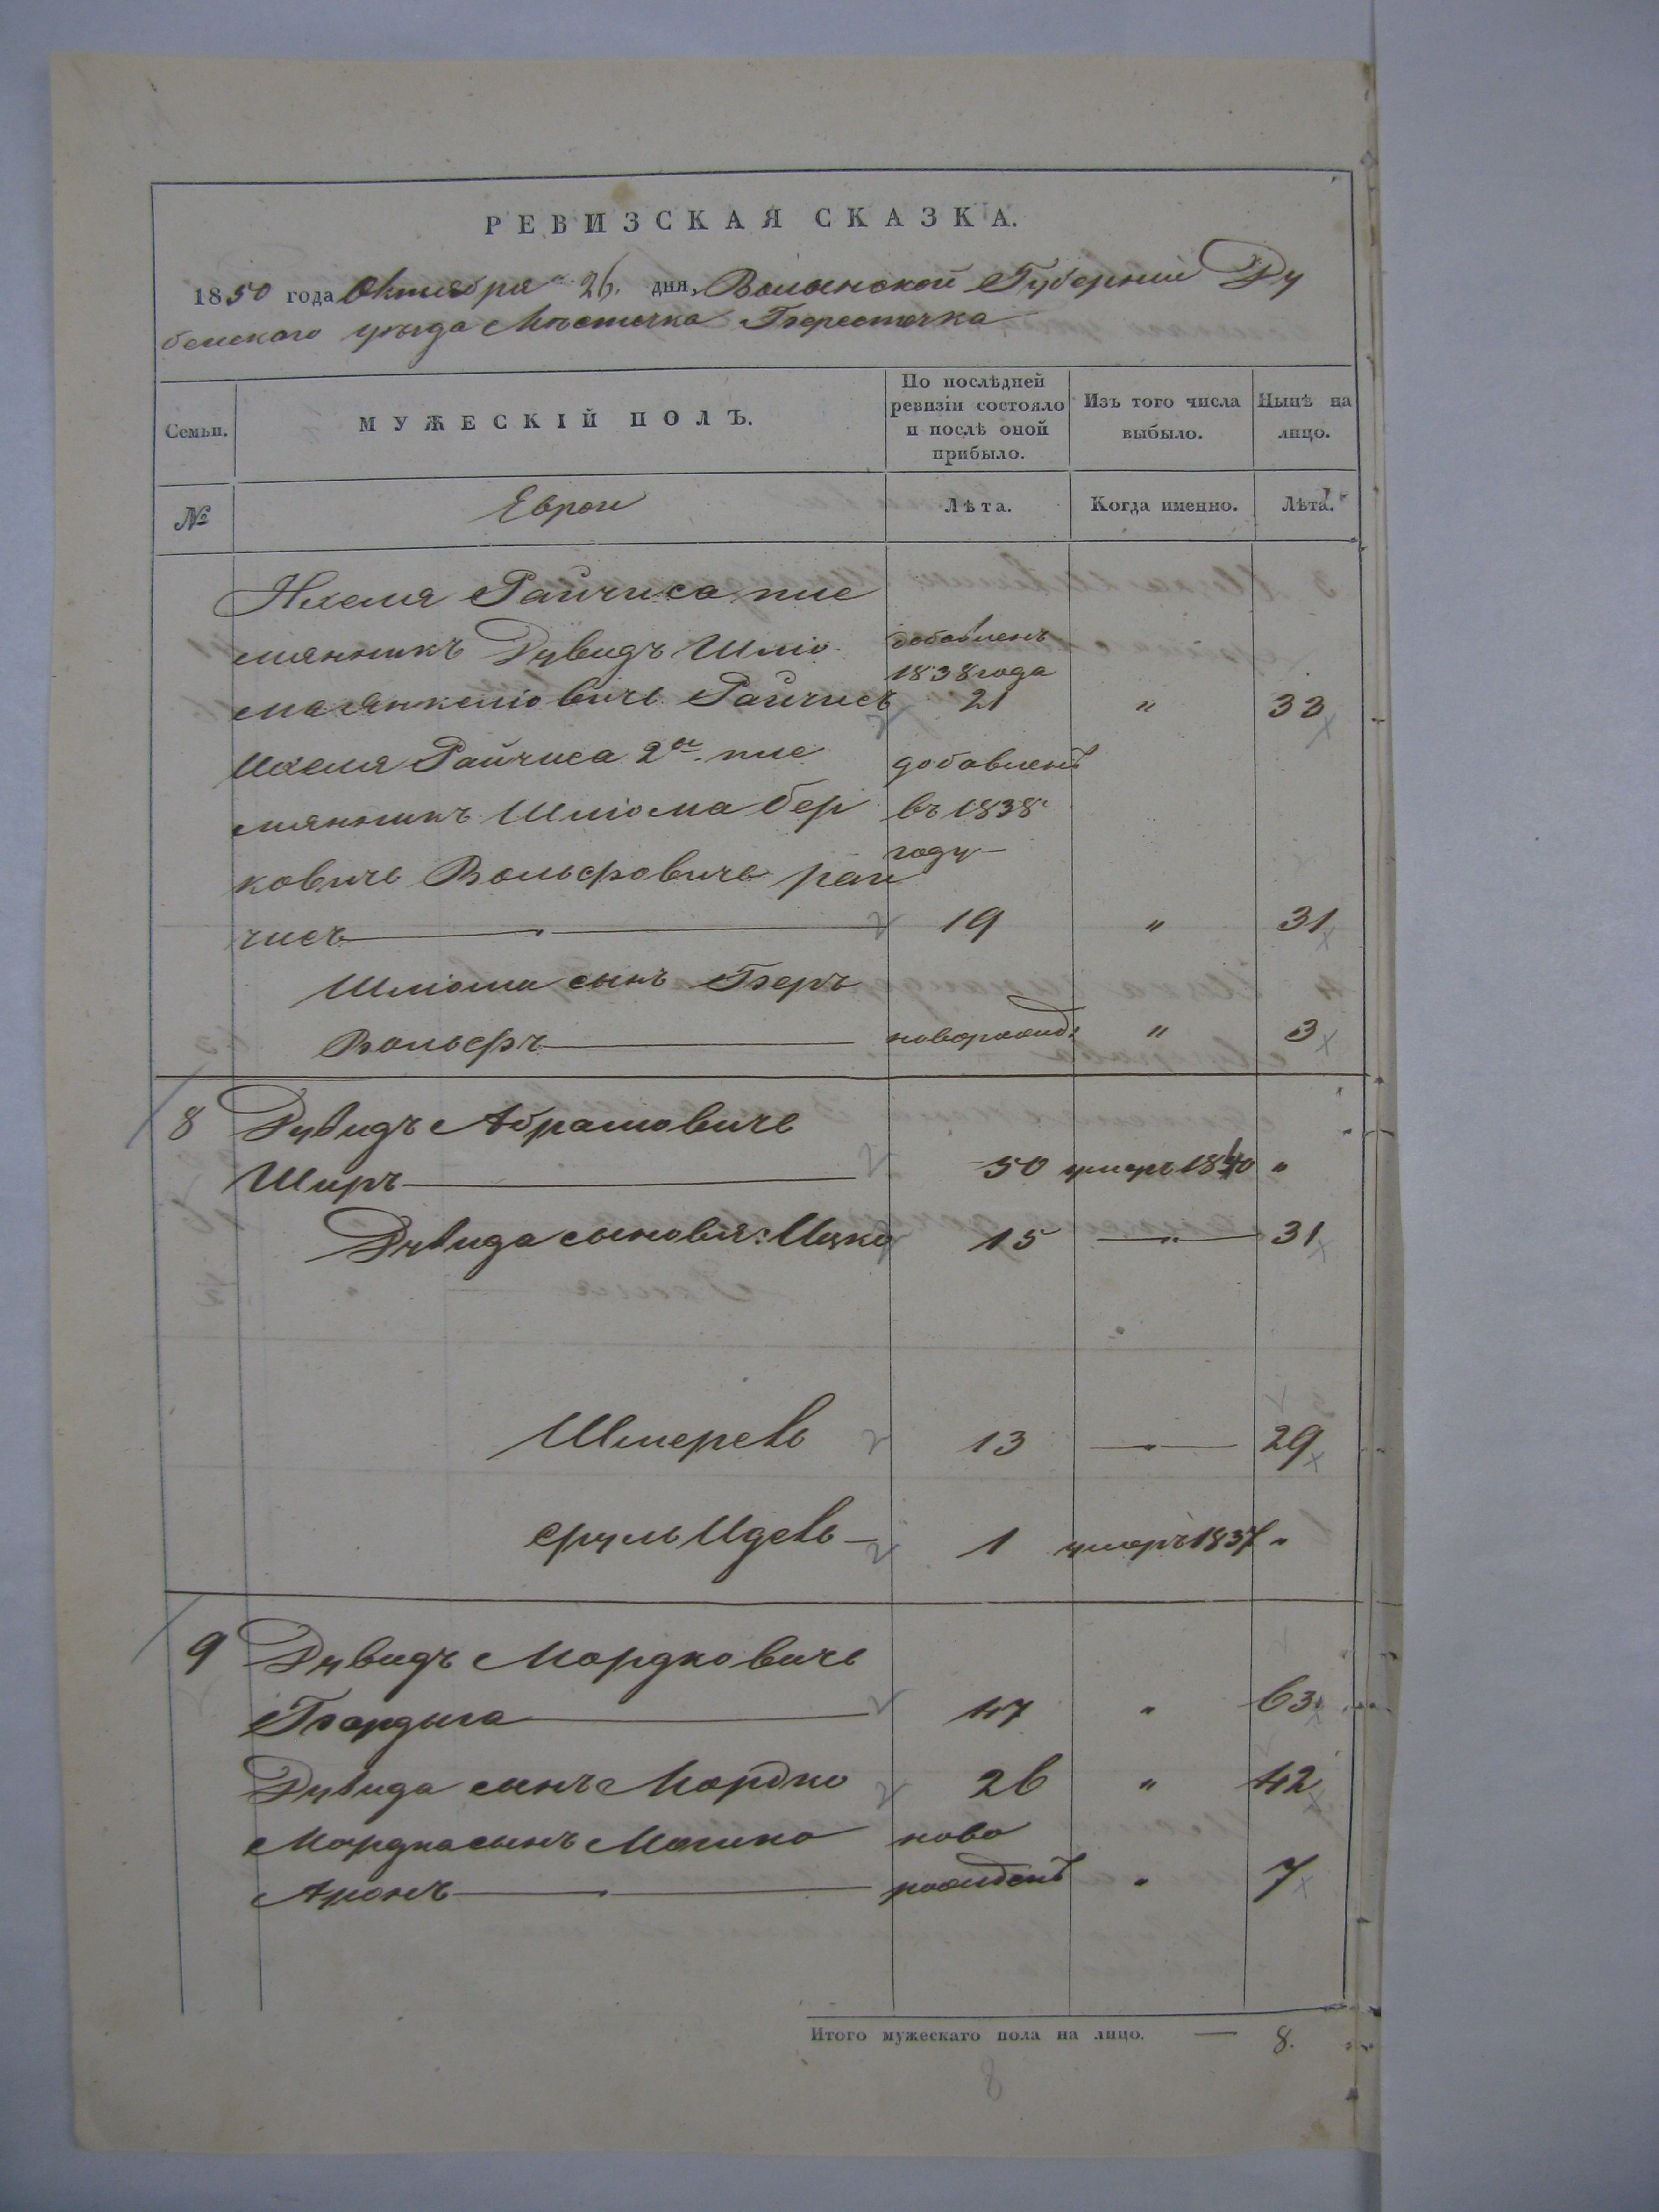 РЕВИЗСКАЯ СКАЗКА.
1850 года Октября 26. дня, Волынской Губернии Ду
бенского уезда Мѣстечка Берестечка
Семьи.
МУЖЕСКІЙ ПОЛЪ.
По послѣдней ревизіи состояло и послѣ оной прибыло.
Изъ того числа выбыло.
Нынѣ на лицо.
№
Евреи
Лѣта.
Когда именно.
Лѣта.
Райчиса пле
мянникъ Дувидъ Шліо
добавленъ 1838 года
ма Янкеліовичь Райчисъ 21 " 33
Райчиса 2й. пле добавленъ
мянникъ Шліома Бер въ 1838
ковичь Вольфовичь Рай году
чисъ 19 " 31
Шліомы сынъ Беръ
Вольфъ новорожд: " 3
8 Дувидъ Абрамовичь
Широ 50 умеръ 1840 "
Дувида сыновья: Ицко 15 31
Шмерель 13 29
Сруль Идель 1 умеръ 1837 "
9 Дувидъ Мордковичь
47 " 63
Дувида сынъ Мордко 26 " 42
Мордка сынъ Мошко ново
Аронъ рожденъ " 7
Итого мужескаго пола на лицо. — 8.
8